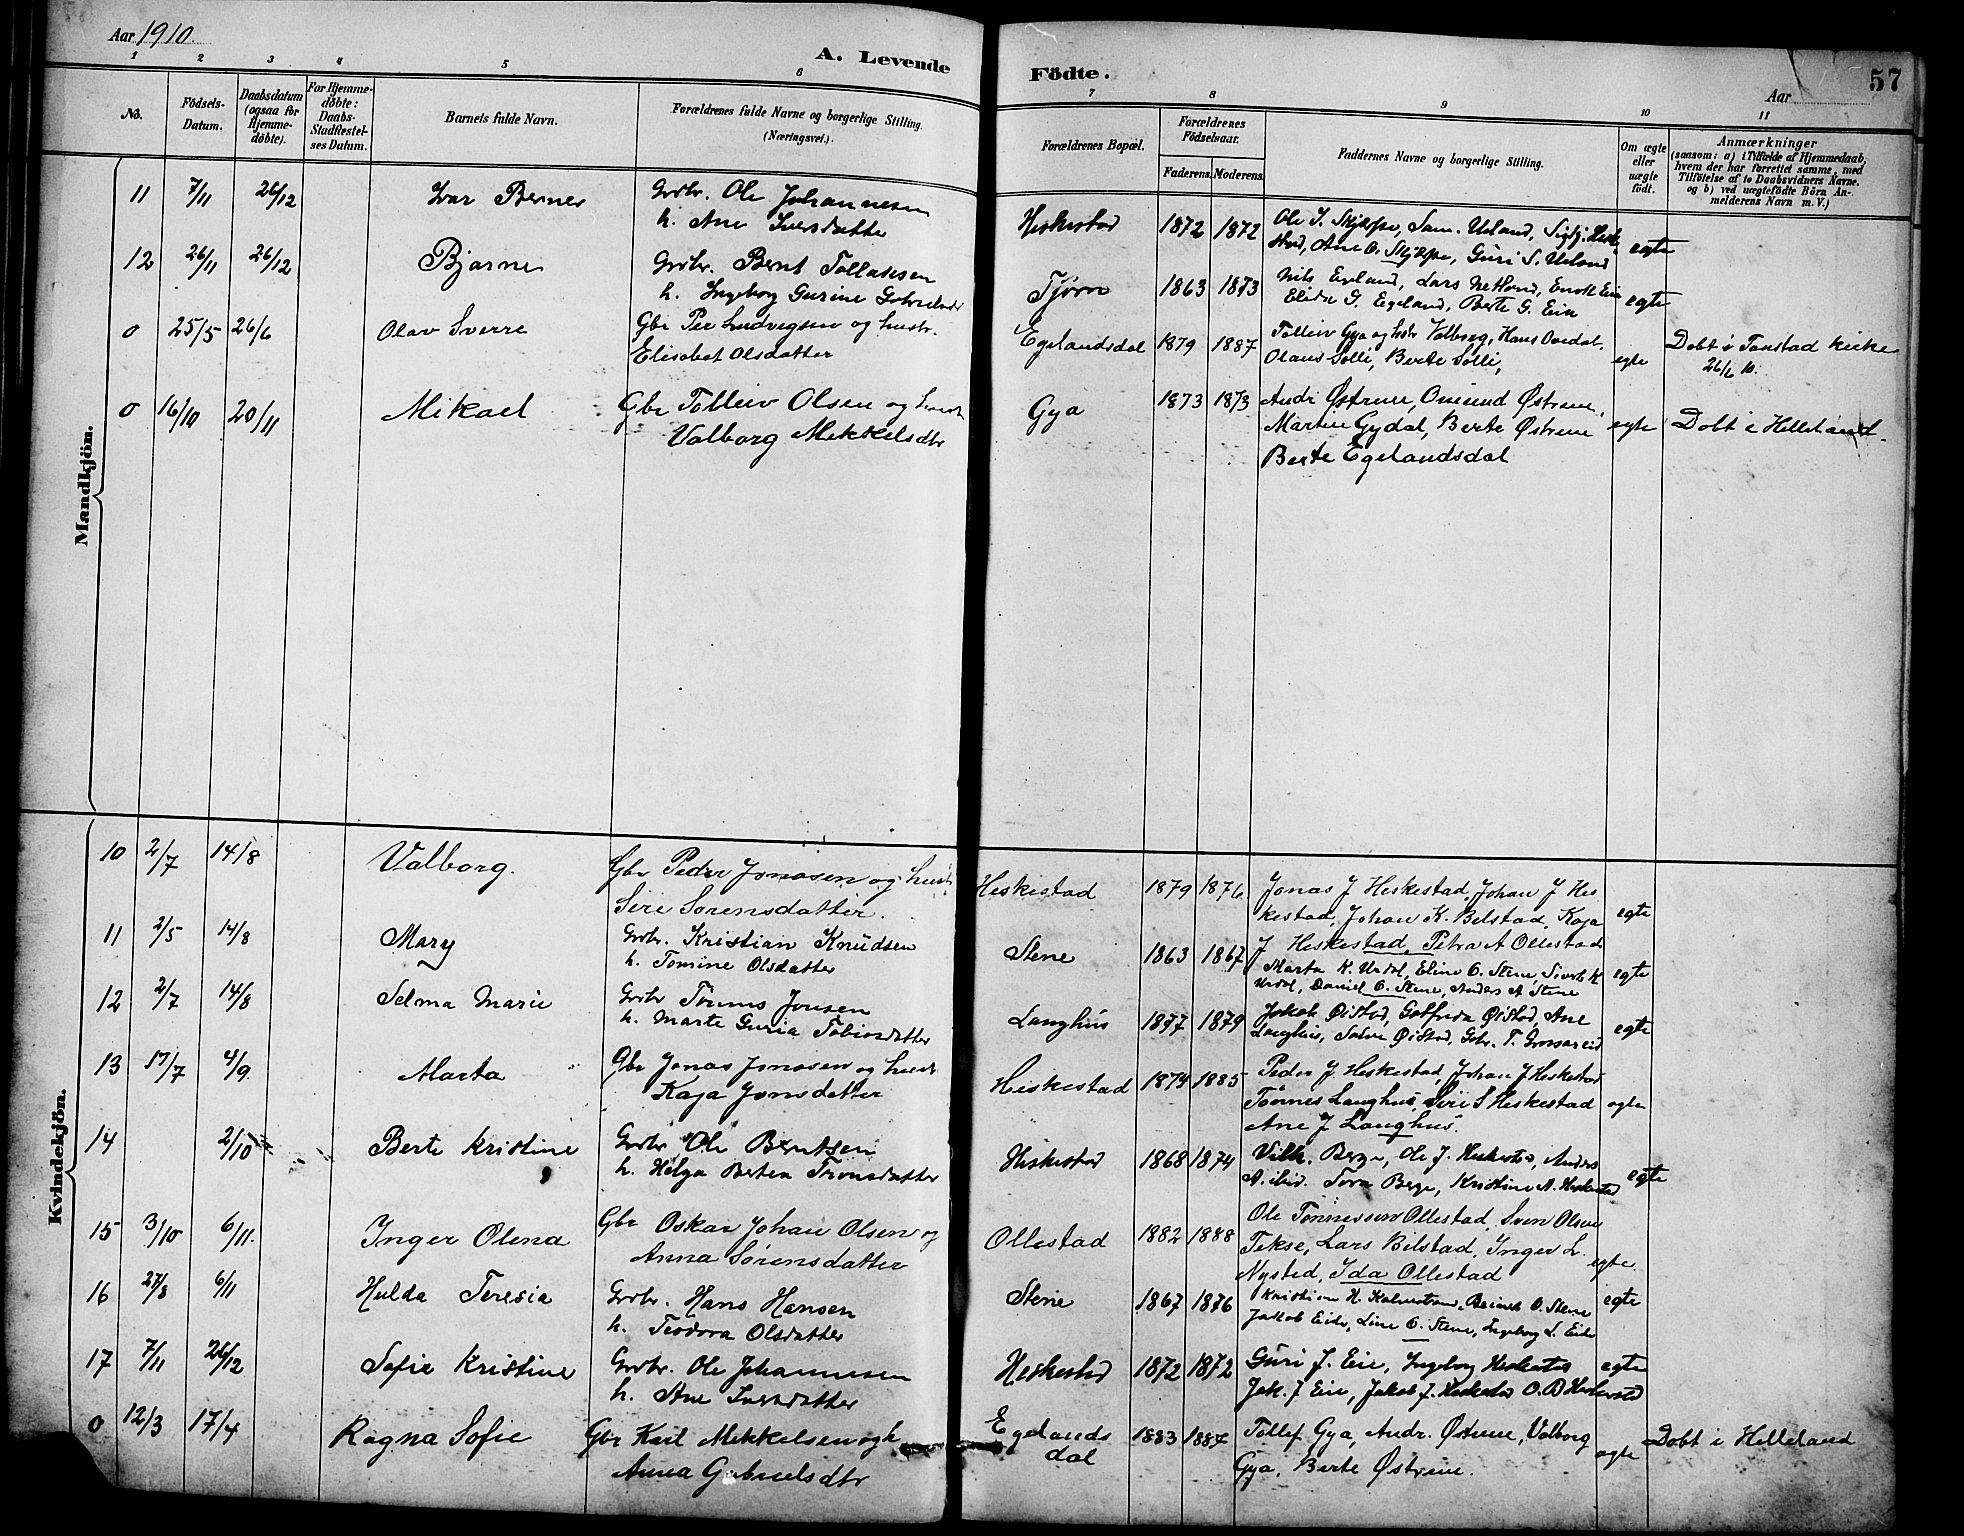 Aar 1910.
A. Levende Födte.
Aar
57
1 2 3 4 5 6 7 8 9 10 11
No.
Födsels-Datum.
Daabsdatum (ogsaa for Hjemme-døbte).
For Hjemme-døbte: Daabs-Stadfæstel-ses Datum.
Barnets fulde Navn.
Forældrenes fulde Navne og borgerlige Stilling. (Næringsvei).
Forældrenes Bopæl.
Forældrenes Födselsaar.
Faderens. Moderens.
Faddernes Navne og borgerlige Stilling.
Om ægte eller uægte født.
Anmærkninger
(saasom: a) i Tilfælde af Hjemmedaab,
hvem der har forrettet samme, med
Tilføielse af to Daabsvidners Navne.
og b) ved uægtefødte Börn An-
melderens Navn m. V.)
Mandkjön.
11 7/11 26/12 Ivar Berner Grdbr. Ole Johannesen
h. Ane Iversdatter
Heskestad 1872 1872 Ole I. Skjerpe, Sam. Ueland, Sigbj. Heske
stad, Ane O. Skjerpe, Guri S. Ueland egte
12 26/11 26/12 Bjarne Grdbr. Bernt Tollaksen
h. Ingeborg Gurine
Tjørn 1863 1873 Nils Egeland, Lars Netland, Enok Eie
Elida G. Egeland, Berte G. Eie egte
0 25/5 26/6 Olav Sverre Gbr Per Ludvigsen og hustr.
Elisabet Olsdatter
Egelandsdal 1879 1887 Tolleiv Gya og hstr Valborg, Hans Ovedal,
Olaus Solli, Berte Solli, egte Døbt i Tonstad kirke
26/6 10.
0 16/10 20/11 Mikael Gbr Tolleiv Olsen og hustr
Valborg Mikkelsdtr
Gya 1873 1873 Andr Østreim, Omund Østreim,
Martin Gydal, Berte Østreim egte Døbt i Helleland.
Berte Egelandsdal
Kvindekjön.
10 2/7 14/8 Valborg. Gbr Peder Jonasen og hustr
Siri Sørensdatter.
Heskestad 1879 1876 Jonas J Heskestad, Johan J Hes
kestad, Johan K. Bilstad, Kaja egte
J Heskestad, Petra A Ollestad
11 2/5 14/8 Mary Grdbr. Kristian Knudsen
h. Tomine Olsdatter
Stene 1863 1867 Marta K. Urdal, Eline O. Stene, Sivert K
Urdal, Daniel O. Stene, Anders A Stene egte
12 2/7 14/8 Selma Marie Grdbr Tønnes Jonsen
h. Marte Guria Tobiasdatter
Langhus 1877 1879 Jakob Øistad, Gotfreda Øistad, Ane
Langhus, Salve Øistad, Gabr. T. egte
13 17/7 4/9 Marta Gbr Jonas Jonasen og hustr
Kaja Jonsdatter
Heskestad 1874 1885 Peder J. Heskestad, Johan J Heskestad
Tønnes Langhus, Siri S Heskestad egte
Ane J Langhus.
14 2/10 Berte Kristine Grdbr. Ole Berntsen
h. Helga Bertea
Heskestad 1868 1874 Vilh. Berge, Ole J. Heskestad, Anders
A. ibid. Tora Berge, Kristine A. Heskestad egte
15 3/10 6/11. Inger Olena Gbr Oskar Johan Olsen og
Anna Sørensdatter
Ollestad 1882 1888 Ole Tønnessen Ollestad, Sven Olsen
Tekse, Lars Bilstad, Inger L.
Nysted, Ida Ollestad egte.
16 27/8 6/11 Hulda Teresia Grdbr. Hans Hansen
h. Teodora Olsdatter
Stene 1867 1876 Kristian H. O. Stene
Jakob Eide, Line O. Stene, Ingeborg L. Eide egte
17 7/11 26/12 Sofie Kristine Grdbr. Ole Johannesen
h. Ane Iversdatter
Heskestad 1872 1872 Guri J. Eie, Ingeborg Heskestad
Jak. J Eie, Jakob J. Heskestad O. B Heskestad egte
0 12/3 17/4 Ragna Sofie Gbr Karl Mikkelsen og h
Anna Gabrielsdtr
Egelands
dal 1883 1887 Tollef Gya, Andr. Østreim, Valborg
Gya, Berte Østreim. egte Døbt i Helleland